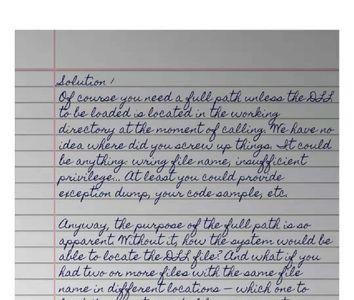 Solution :
Of course you need a full path unless the DLL
to be loaded is located in the working
directory at the moment of calling. We have no
idea where did you screw up things. It could
be anything: wring file name, insufficient
privilege... At least you could provide
exception dump, your code sample, etc.
Anyway, the purpose of the full path is so
apparent. Without it, how the system would be
able to locate the DLL file? And what if you
had two or more files with the same file
name in different locations — which one to